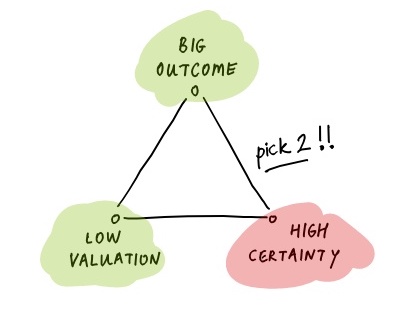 BIG
OUTCOME
pick 2 !!
LOW
VALUATION
HIGH
CERTAINTY